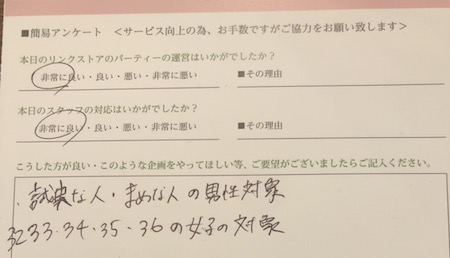 ■簡易アンケート ＜サービス向上の為、お手数ですがご協力をお願い致します＞
本日のリンクストアのパーティーの運営はいかがでしたか？
非常に良い・良い・悪い・非常に悪い ■その理由
本日のスタッフの対応はいかがでしたか？
非常に良い・良い・悪い・非常に悪い ■その理由
こうした方が良い・このような企画をやってほしい等、ご要望がございましたらご記入ください。
・誠実な人・まめな人の男性対象
32 33・34・35・36の女子の対象